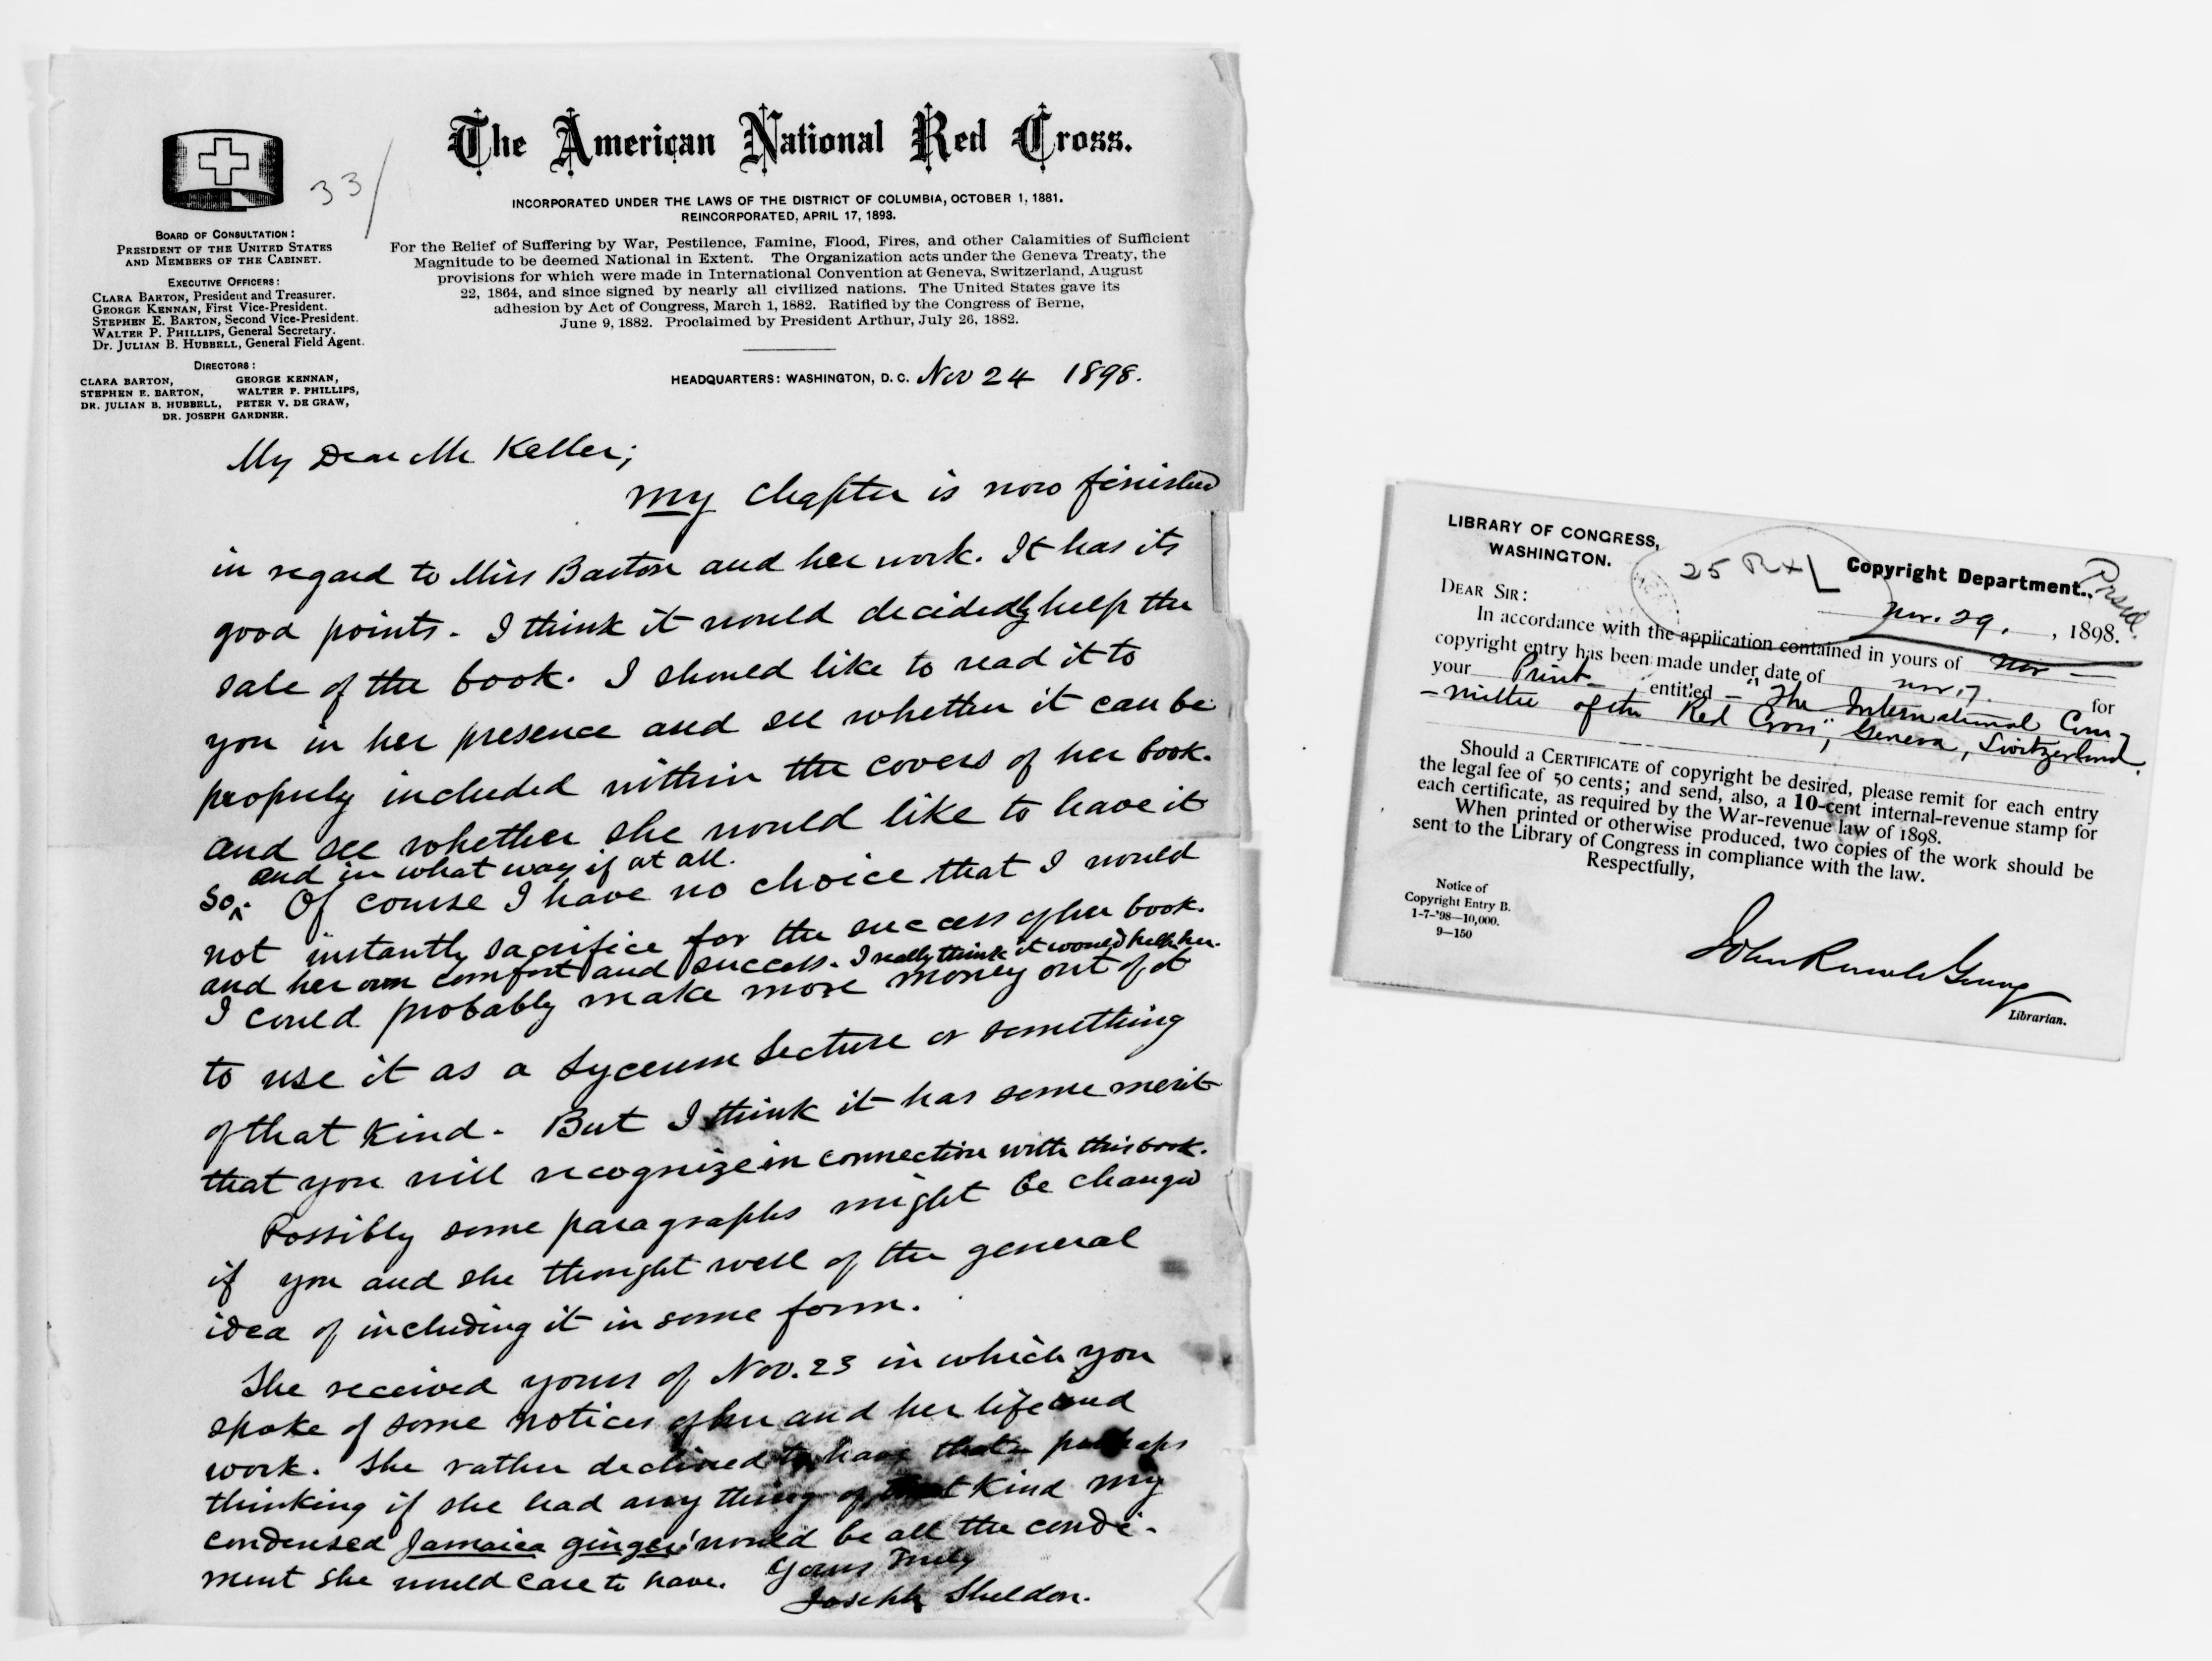 The American National Red Cross.
INCORPORATED UNDER THE LAWS OF THE DISTRICT OF COLUMBIA, OCTOBER 1, 1881.
REINCORPORATED, APRIL 17, 1893.
For the Relief of Suffering by War, Pestilence, Famine, Flood, Fires, and other Calamities of Sufficient
Magnitude to be deemed National in Extent. The Organization acts under the Geneva Treaty, the
provisions for which were made in International Convention at Geneva, Switzerland, August
22, 1864, and since signed by nearly all civilized nations. The United States gave its
adhesion by Act of Congress, March 1, 1882. Ratified by the Congress of Berne,
June 9, 1882. Proclaimed by President Arthur, July 26, 1882.
33/
BOARD OF CONSULTATION:
PRESIDENT OF THE UNITED STATES
AND MEMBERS OF THE CABINET.
EXECUTIVE OFFICERS:
CLARA BARTON, President and Treasurer.
GEORGE KENNAN, First Vice-President.
STEPHEN E. BARTON, Second Vice-President.
WALTER P. PHILLIPS, General Secretary.
Dr. JULIAN B. HUBBELL, General Field Agent.
DIRECTORS:
CLARA BARTON, GEORGE KENNAN,
STEPHEN E. BARTON, WALTER P. PHILLIPS,
DR. JULIAN B. HUBBELL, PETER V. DE GRAW,
DR. JOSEPH GARDNER.
HEADQUARTERS: WASHINGTON, D. C. Nov 24 1898.
My Dear Mr Keller;
my chapter is now finished
in regard to Miss Barton and her work. It has its
good points. I think it would decidedly help the
sale of the book. I should like to read it to
you in her presence and see whether it can be
properly included within the covers of her book.
and see whether she would like to have it
and in what way if at all.
so. Of course I have no choice that I would
not instantly sacrifice for the success of her book.
and her own comfort and success. I really think it would help her.
I could probably make more money out of it
to use it as a Lyceum Lecture or something
of that kind. But I think it has some merit
that you will recognize in connection with this book.
Possibly some paragraphs might be changed
if you and she thought well of the general
idea of including it in some form.
She received yours of Nov. 23 in which you
spoke of some notices of her and her life and
work. She rather declined to have that perhaps
thinking if she had any thing of that kind my
condensed Jamaica ginger would be all the condi-
ment she would care to have. Yours Truly
Joseph Sheldon.
LIBRARY OF CONGRESS,
WASHINGTON.
25 Copyright Department.
Nov. 29, , 1898.
DEAR SIR:
In accordance with the application contained in yours of Nov
copyright entry has been made under date of Nov. 17. for
your Print entitled "The International Com-
-mittee of the Red Cross", Geneva, Switzerland.
Should a CERTIFICATE of copyright be desired, please remit for each entry
the legal fee of 50 cents; and send, also, a 10-cent internal-revenue stamp for
each certificate, as required by the War-revenue law of 1898.
When printed or otherwise produced, two copies of the work should be
sent to the Library of Congress in compliance with the law.
Respectfully,
Notice of
Copyright Entry B.
1-7-'98—10,000.
9—150
John Russell Young
Librarian.